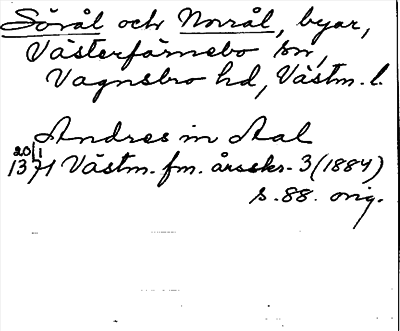 Sörål och Norrål, byar,
Västerfärnebo sn,
Vagnsbro hd, Västm. l.
Andres in Aal
20/1 1371 Västm. fm. årsskr. 3 (1884)
s. 88. orig.